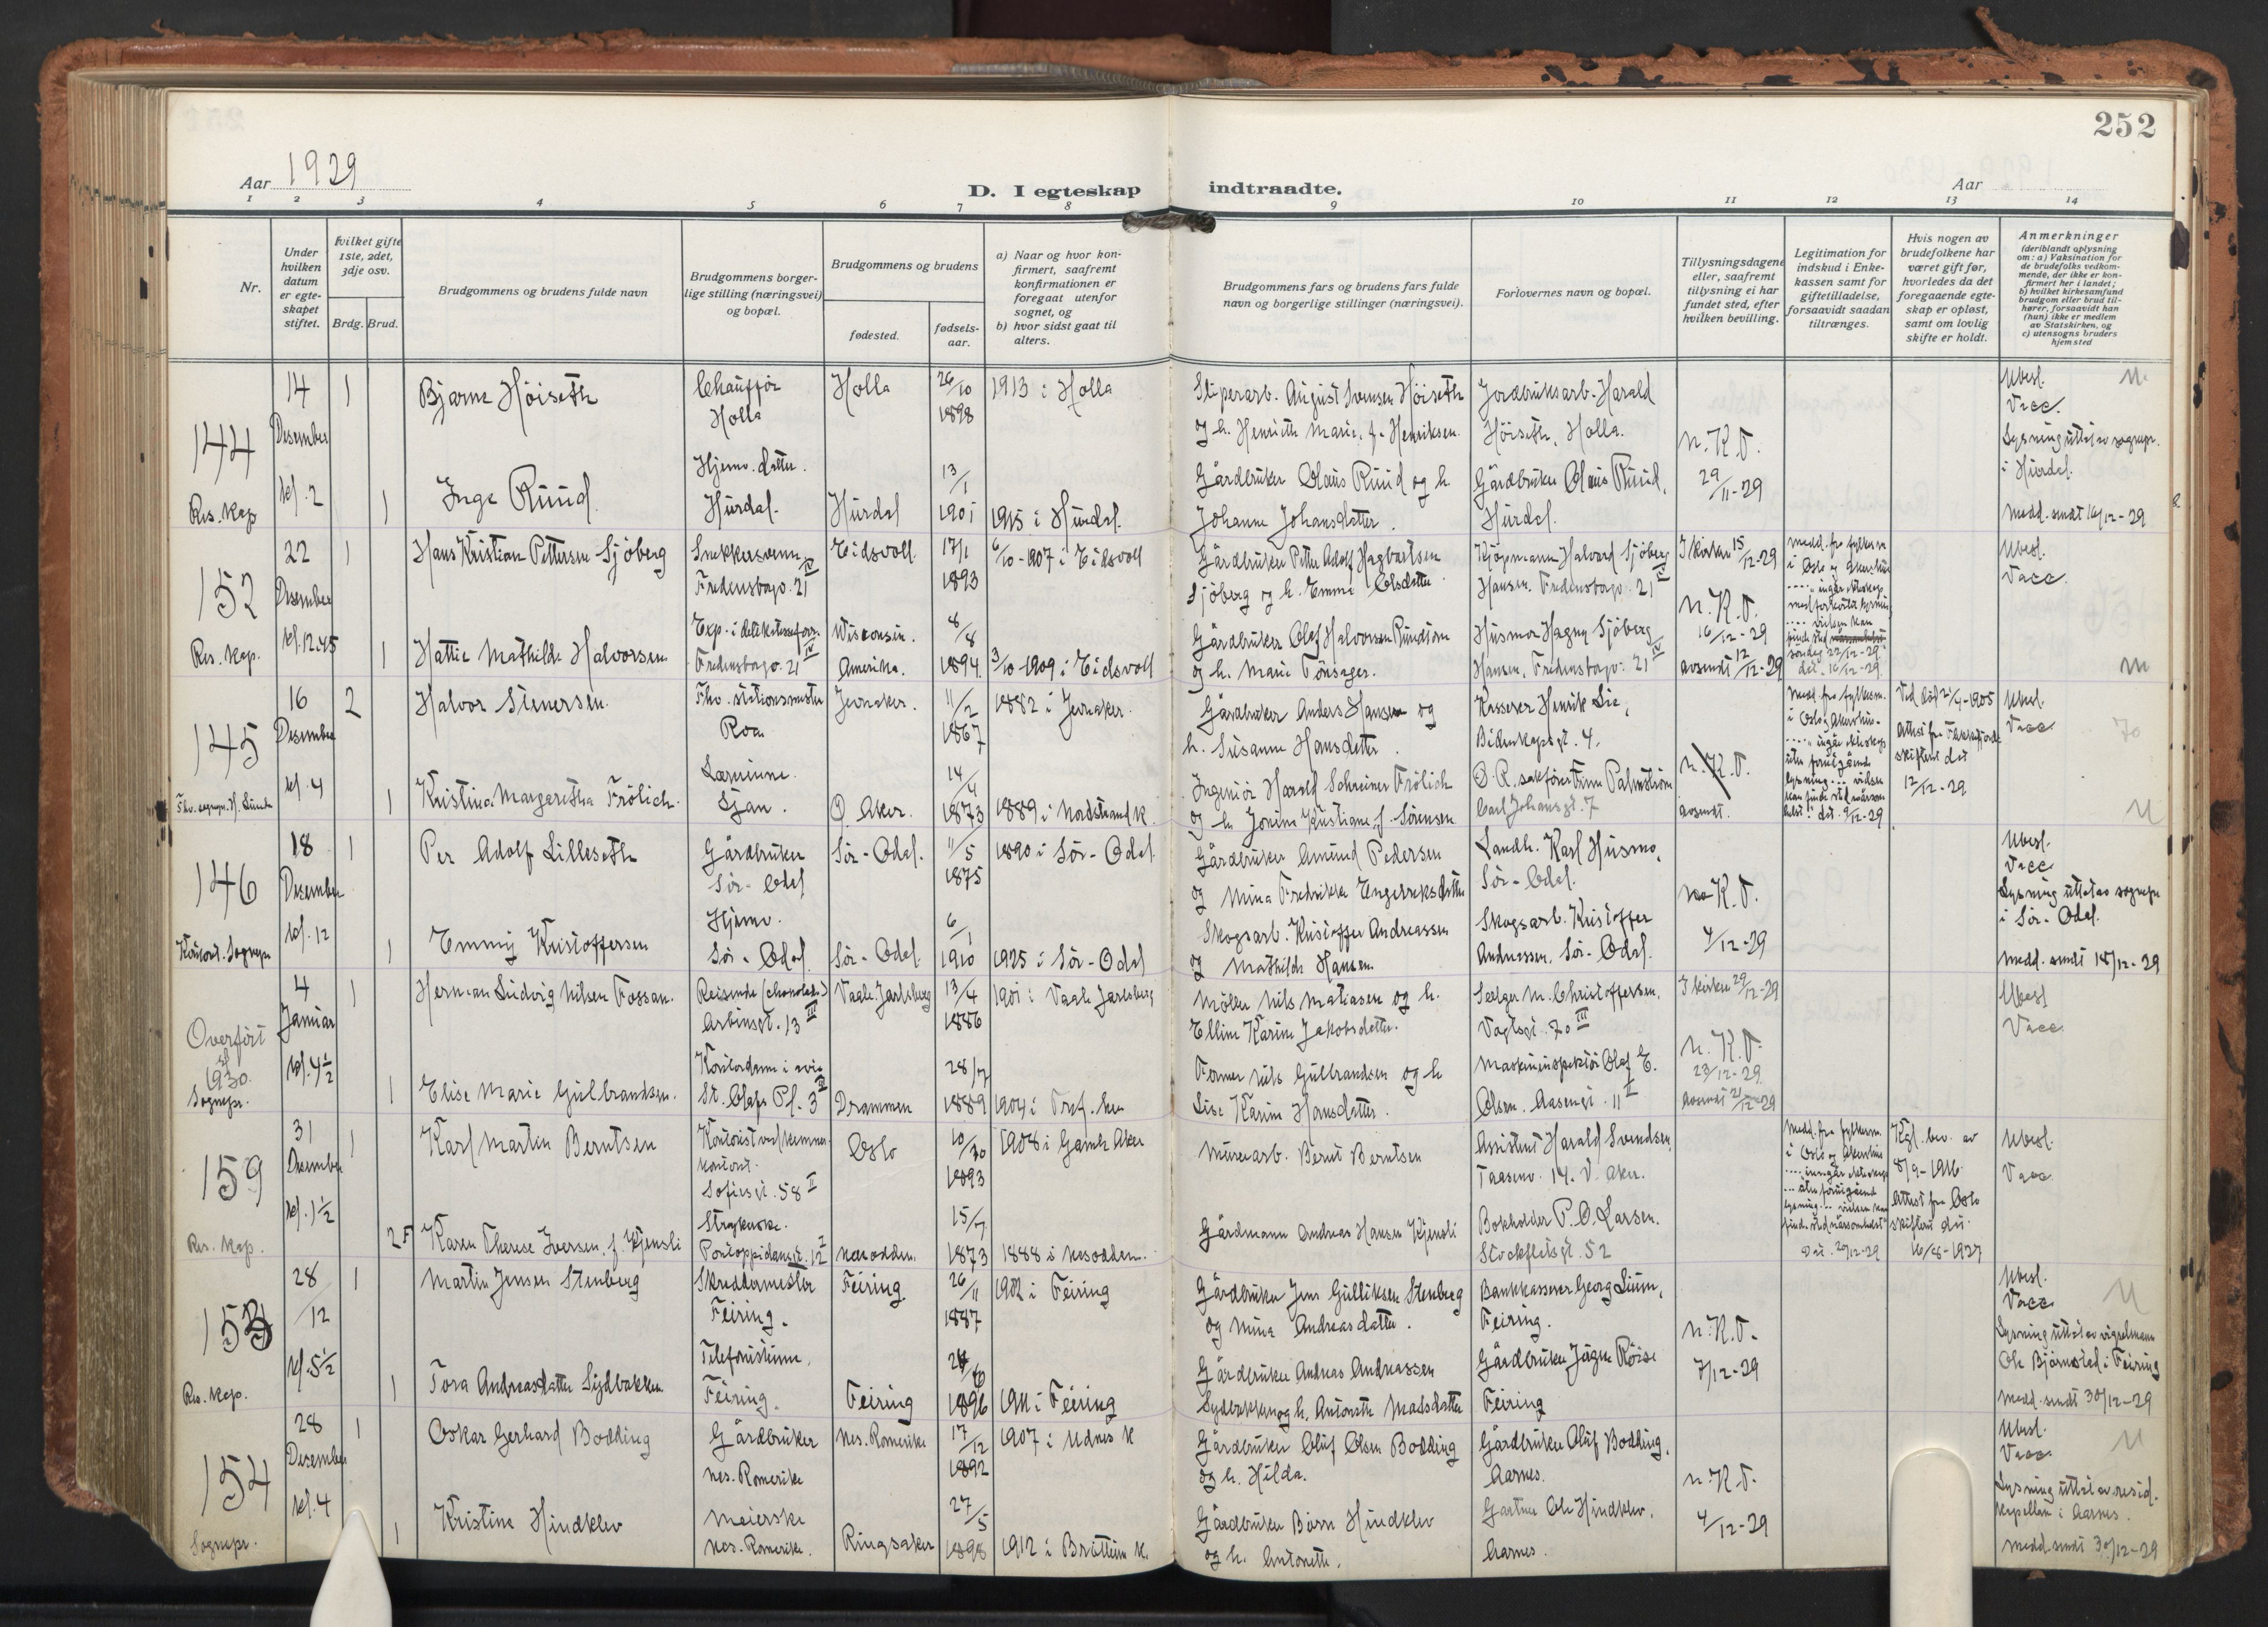 252
Aar 1929
D. I egteskap indtraadte.
Aar
1 2 3 4 5 6 7 8 9 10 11 12 13 14
Nr.
Under hvilken datum er egteskapet stiftet.
hvilket gifte 1ste, 2det, 3dje osv.
Brdg. Brud.
Brudgommens og brudens fulde navn
Brudgommens borgerlige stilling (næringsvei) og bopæl.
Brudgommens og brudens
fødested.
fødselsaar.
a) Naar og hvor konfirmert, saafremt konfirmationen er foregaat utenfor sognet, og
b) hvor sidst gaat til alters.
Brudgommens fars og brudens fars fulde navn og borgerlige stillinger (næringsvei).
Forlovernes navn og bopæl.
Tillysningsdagene eller, saafremt tillysning ei har fundet sted, efter hvilken bevilling.
Legitimation for indskud i Enkekassen samt for giftetilladelse, forsaavidt saadan tiltrænges.
Hvis nogen av brudefolkene har været gift før, hvorledes da det foregaaende egteskap er opløst, samt om lovlig skifte er holdt.
Anmerkninger
(deriblandt oplysning om: a) Vaksination for de brudefolks vedkommende, der ikke er konfirmert her i landet; b) hvilket kirkesamfund brudgom eller brud tilhører, forsaavidt han (hun) ikke er medlem av Statskirken, og c) utensogns bruders hjemsted
144
14 Desember kl. 2
Res. kap
1
Bjarne Höiseth
Chauffør
Holla
Holla
26/10 1898
1913 i Holla
Sliperarb. August Svensen Höiseth
og h. Henriette Marie, f. Henriksen.
Jordbruksarb. Harald
Höiseth, Holla.
n. K. T.
29/11-29
Ubesl.
Vacc.
Lysning utført av sognepr.
i Hurdal.
Medd. sendt 16/12-29
1
Inge Ruud
Hjemv. datter.
Hurdal.
Hurdal
13/1 1901
1915 i Hurdal.
Gårdbruker Olaus Ruud og h.
Johanne Johansdatter.
Gårdbruker Olaus Ruud,
Hurdal.
152
22 Desember kl. 12.45
Res. kap.
1
Hans Kristian Pettersen Sjöberg
Snekkersvenn
Fredensborgv. 21 IV
Eidsvoll
17/1 1893
6/10-1907 i Eidsvoll
Gårdbruker Petter Adolf Hagbartsen
Sjöberg og h. Emma Olsdatter
Kjöpmann Halvard Sjöberg
Hansen. Fredensborgv. 21 IV
I kirken 15/12-29
n. K. T.
16/12-29
avsendt 12/12-29
Medd. fra fylkesm.
i Oslo og Akershus
Ubesl.
Vacc.
1
Hattie Mathilde Halvorsen
Exp. i delikatesseforr.
Fredensborgv. 21 IV
Wisconsin.
Amerika.
8/8 1894
3/10-1909 i Eidsvoll
Gårdbruker Olaf Halvorsen
og h. Marie Tönsager.
Husmor Hagny Sjöberg
Hansen, Fredensborgv. 21 IV
145
16 Desember kl. 4
2
Halvor Stenersen.
Fhv. stationsmester
Roa
Jevnaker.
11/2 1867
1882 i Jevnaker.
Gårdbruker Anders Hansen og
h. Susanne Hansdatter.
Kasserer Henrik Lie,
n. K. T.
avsendt.
Medd. fra fylkesm.
i Oslo og Akershus
Ved død 21/4-1905
12/12-29
Ubesl.
Vacc
1
Kristina Margaretha Frölich.
Lærerinne.
Ljan.
Ö. Aker.
14/4 1873
1889 i Nordstrand K.
Ingeniör Harald Schreiner Frölich
og h. Jonine Kristiane, f. Sörensen
O. R. sakförer Palmström
Carl Johansgt. 7
146
18 Desember kl. 12
1
Per Adolf Lilleseth
Gårdbruker
Sör-Odal
Sör-Odal.
11/5 1875
1890 i Sör-Odal
Gårdbruker Amund Pedersen
og Mina Fredrikke Engebretsdatter
Landh. Karl Husmo,
Sör-Odal.
n. K. T.
4/12-29
Ubesl.
Vacc
Lysning utført av sognepr
i Sör-Odal.
Medd. sendt 18/12-29
1
Emmy Kristoffersen
Hjemv.
Sör-Odal
Sör-Odal
6/1 1910
1925 i Sör-Odal
Skogsarb. Kristoffer Andreassen
og Mathilde Hansen.
Skogsarb. Kristoffer
Andreassen, Sör-Odal.
Overfört til 1930.
Sognepr.
4 Januar kl. 4½
1
Herman Ludvig Nilsen Fossan.
Reisende (chokolade)
Arbinsgt. 13 III
Vaale Jarlsberg
13/4 1886
1901 i Vaale Jarlsberg
Möller Nils Matiasen og h.
Elline Karine Jakobsdatter.
Selger M. Christoffersen,
Vogtsgt. 70 III
I kirken 29/12-29
n. K. T.
23/12-29
avsendt 21/12-29
Ubesl
Vacc.
1
Elise Marie Gulbrandsen.
St. Olafs Pl. 3
Drammen
28/7 1889
1904 i Tref. her
Former Nils Gulbrandsen og h
Lise Karine Hansdatter.
Maskininspektör Olaf E.
Olsen. Aasengt. 11 II
159
31 Desember kl. 1½
Res. kap.
1
Karl Martin Berntsen
Kontorist ved kemner-
kontoret.
Sofiesgt. 58 II
Oslo
10/10 1893
1908 i Gamle Aker
Murerarb. Bernt Berntsen
Assistent Harald Svendsen,
Taasenv. 14. V. Aker.
Medd. fra fylkesm.
i Oslo og Akershus
Dat. 20/12-29
Kgl. bev. av
8/9-1916.
Attest fra Oslo
skifterett dat.
16/8-1927
Ubesl.
Vacc
2 F
Karen Therese Iversen, f. Kjensli
Strykerske.
Pontoppidansgt. 12
Nesodden.
15/7 1873
1888 i Nesodden.
Gårdmann Andreas Hansen Kjensli
Bokholder P. O. Larsen.
Stockfletsgt. 52
153
28/12 kl. 5½
Res. kap.
1
Martin Jensen Stenberg
Skreddermester
Feiring.
Feiring
26/11 1887
1902 i Feiring
Gårdbruker Jens Gulliksen Stenberg
og Mina Andreasdatter.
Bankkasserer Georg Lium,
Feiring.
n. K. T.
7/12-29
Ubesl.
Vacc
Lysning utført av vigselmann
Ole Björnstad i Feiring
Medd. sendt 30/12-29
1
Tora Andreasdatter Sydbakken
Telefonistinne.
Feiring.
Feiring
1896
1911 i Feiring
Gårdbruker Andreas Andreassen
Sydbakken og h. Antonette Madsdatter
Gårdbruker Jörgen Röise
Feiring
154
28 Desember kl. 4
Sognepr.
1
Oskar Gerhard Bodding
Gårdbruker
Nes. Romerike
Nes. Romerike
17/12 1892
1907 i Udnes K
Gårdbruker Oluf Olsen Bodding
og h. Hilda.
Gårdbruker Oluf Bodding,
Aarnes.
n. K. T.
4/12-29
Ubesl.
Vacc.
Lysning utført av resid.
kapellan i Aarnes.
Medd. sendt 30/12-29
1
Kristine Hindklev
Meierske
Nes. Romerike.
Ringsaker
27/5 1898
1912 i Bröttum K.
Gårdbruker Börre Hindklev
og h. Antonette.
Gartner Ole Hindklev.
Aarnes.